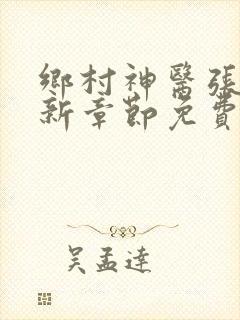 鄉村神醫張
新章節免費
吳孟達